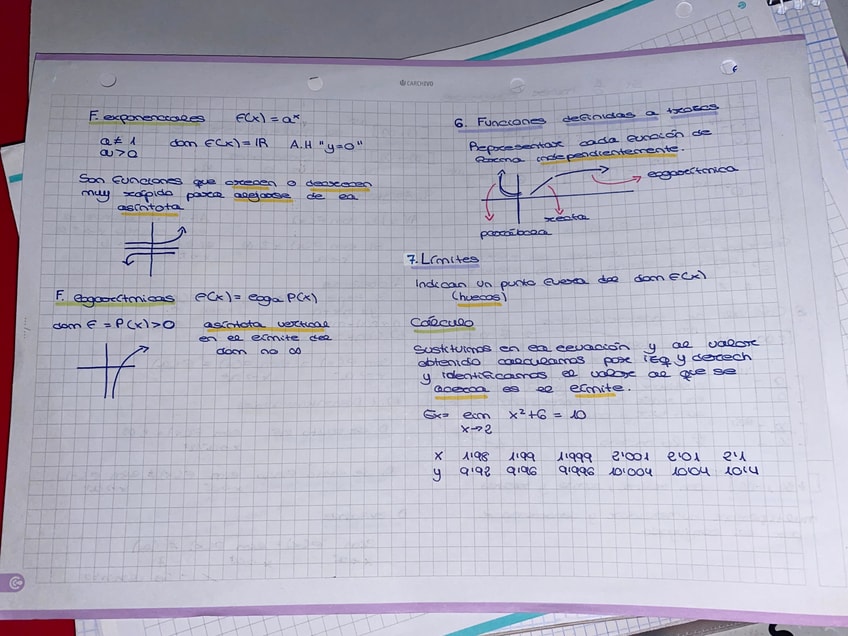 CARCHIVO
F. exponenciales F(x) = aˣ
a ≠ 1
a > 0
dom F(x) = ℝ A.H "y=0"
Son funciones que crecen o decrecen
muy rápido para alejarse de la
asíntota
F. logarítmicas F(x) = loga P(x)
dom F = P(x) > 0 asíntota vertical
en el límite del
dom no ∞
6. Funciones definidas a trozos
Representar cada función de
forma independientemente.
logarítmica
recta
parábola
7. Límites
Indican un punto fuera del dom F(x)
(huecos)
Cálculo
Sustituimos en la ecuación y al valor
obtenido calculamos por izq y derech
y identificamos el valor al que se
acerca es el límite.
Ex= lim x²+6 = 10
x→2
x 1'98 1'99 1'999 2'001 2'01 2'1
y 9'92 9'96 9'996 10'004 10'04 10'4